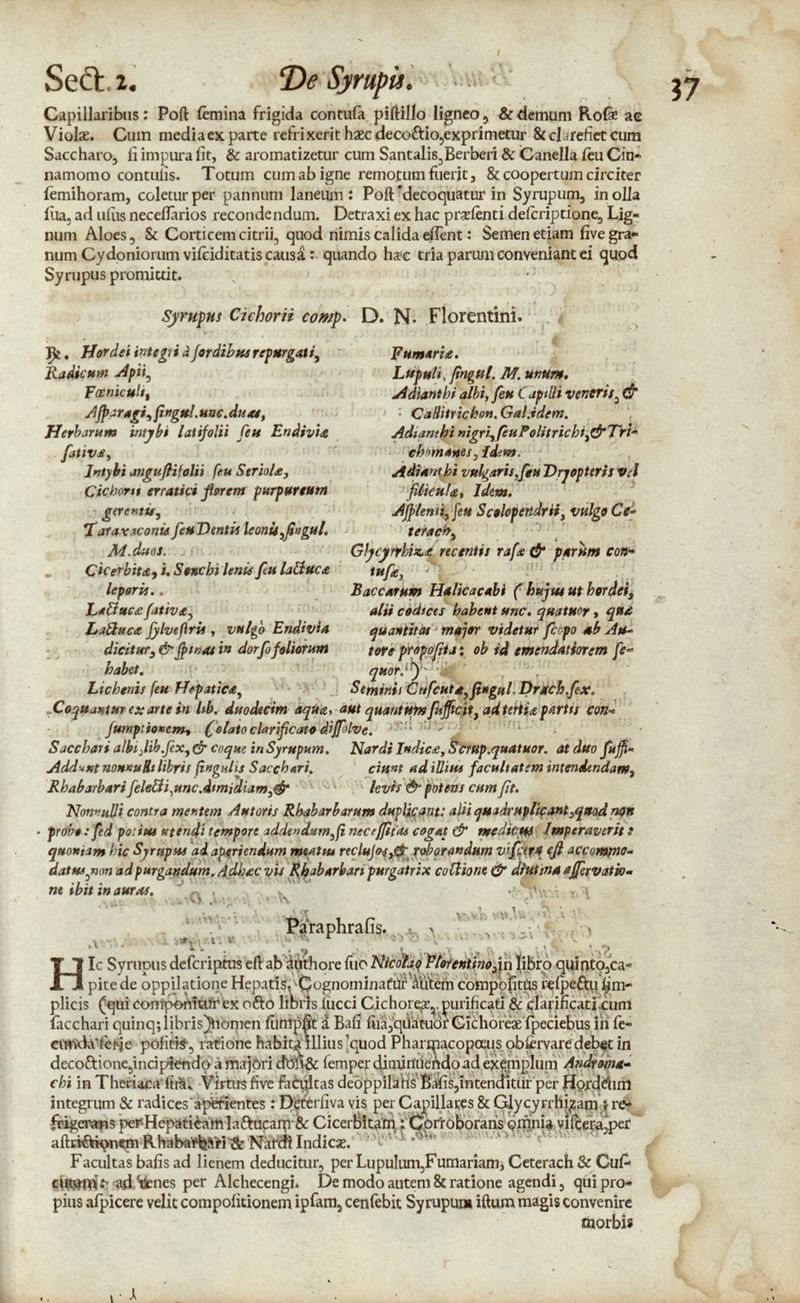 Sect. 2.
De Syrupis.
37
Capillaribus: Post semina frigida contusa pistillo ligneo, & demum Rosæ ac
Violæ. Cum media ex parte refrixerit hæc decoctio,exprimetur & clarefiet cum
Saccharo, si impura sit, & aromatizetur cum Santalis,Berberi & Canella seu Cin-
namomo contusis. Totum cum ab igne remotum fuerit, & coopertum circiter
semihoram, coletur per pannum laneum: Post decoquatur in Syrupum, in olla
sua, ad usus necessarios recondendum. Detraxi ex hac præsenti descriptione, Lig-
num Aloes, & Corticem citrii, quod nimis calida essent: Semen etiam sive gra-
num Cydoniorum visciditatis causâ: quando hæc tria parum conveniant ei quod
Syrupus promittit.
Syrupus Cichorii comp. D. N. Florentini.
℞. Hordei integri à sordibus repurgati,
Radicum Apii,
Fœniculi,
Asparagi, singul.unc.duas,
Herbarum intybi latifolii seu Endiviæ
sativæ,
Intybi angustifolii seu Seriolæ,
Cichorii erratici florem purpureum
gerentis,
Taraxaconis seu Dentis leonis,singul.
M.duos.
Cicerbitæ, i. Sonchi lenis seu lactucæ
leporis.
Lactucæ sativæ,
Lactucæ sylvestris, vulgò Endivia
dicitur, & spinas in dorso foliorum
habet.
Lichenis seu Hepaticæ,
Fumariæ.
Lupuli, singul. M. unum.
Adianthi albi, seu Capilli veneris, &
Callitrichon. Gal.idem.
Adianthi nigri, seu Politrichi, & Tri-
chomanes, Idem.
Adianthi vulgaris, seu Dryopteris vel
filiculæ, Idem.
Asplenii, seu Scolopendrii, vulgo Ce-
terach,
Glycyrrhizæ recentis rasæ & parùm con-
tusæ,
Baccarum Halicacabi (hujus ut hordei,
alii codices habent unc. quatuor, quæ
quantitas major videtur scopo ab Au-
tore proposita: ob id emendatiorem se-
quor.)
Seminis Cuscutæ, singul. Drach.sex.
Coquantur ex arte in lib. duodecim aquæ, aut quantum sufficit, ad tertiæ partis con-
sumptionem, Colato clarificato dissolve.
Sacchari albi,lib.sex, & coque in Syrupum.
Addunt nonnulli libris singulis Sacchari.
Rhabarbari selecti,unc.dimidiam, &
Nardi Indicæ, Scrup.quatuor. at duo suffi-
ciunt ad illius facultatem intendendam,
levis & potens cum sit.
Nonnulli contra mentem Autoris Rhabarbarum duplicant: alii quadruplicant,quod non
probo: sed potius utendi tempore addendum,si necessitas cogat & medicus Imperaverit:
quoniam hic Syrupus ad aperiendum meatus reclusos, & roborandum viscera est accommo-
datus,non ad purgandum. Adhæc vis Rhabarbari purgatrix coctione & diutina asservatio-
ne ibit in auras.
Paraphrasis.
HIc Syrupus descriptus est ab authore suo Nicolao Florentino,in libro quinto,ca-
pite de oppilatione Hepatis. Cognominatur autem compositus respectu sim-
plicis (qui componitur ex octo libris succi Cichoreæ, purificati & clarificati cum
sacchari quinq; libris) nomen sumpsit à Basi sua,quatuor Cichoreæ speciebus in se-
cunda serie positis, ratione habitâ illius quod Pharmacopœus observare debet in
decoctione,incipiendo a majori dosi & semper diminuendo ad exemplum Androma-
chi in Theriaca sua. Virtus sive facultas deoppilatis Basis,intenditur per Hordeum
integrum & radices aperientes: Detersiva vis per Capillares & Glycyrrhizam; re-
frigerans per Hepaticam lactucam & Cicerbitam: Corroborans omnia viscera,per
astrictionem Rhabarbari & Nardi Indicæ.
Facultas basis ad lienem deducitur, per Lupulum,Fumariam, Ceterach & Cus-
cutam: ad renes per Alchecengi. De modo autem & ratione agendi, qui pro-
pius aspicere velit compositionem ipsam, censebit Syrupum istum magis convenire
morbis